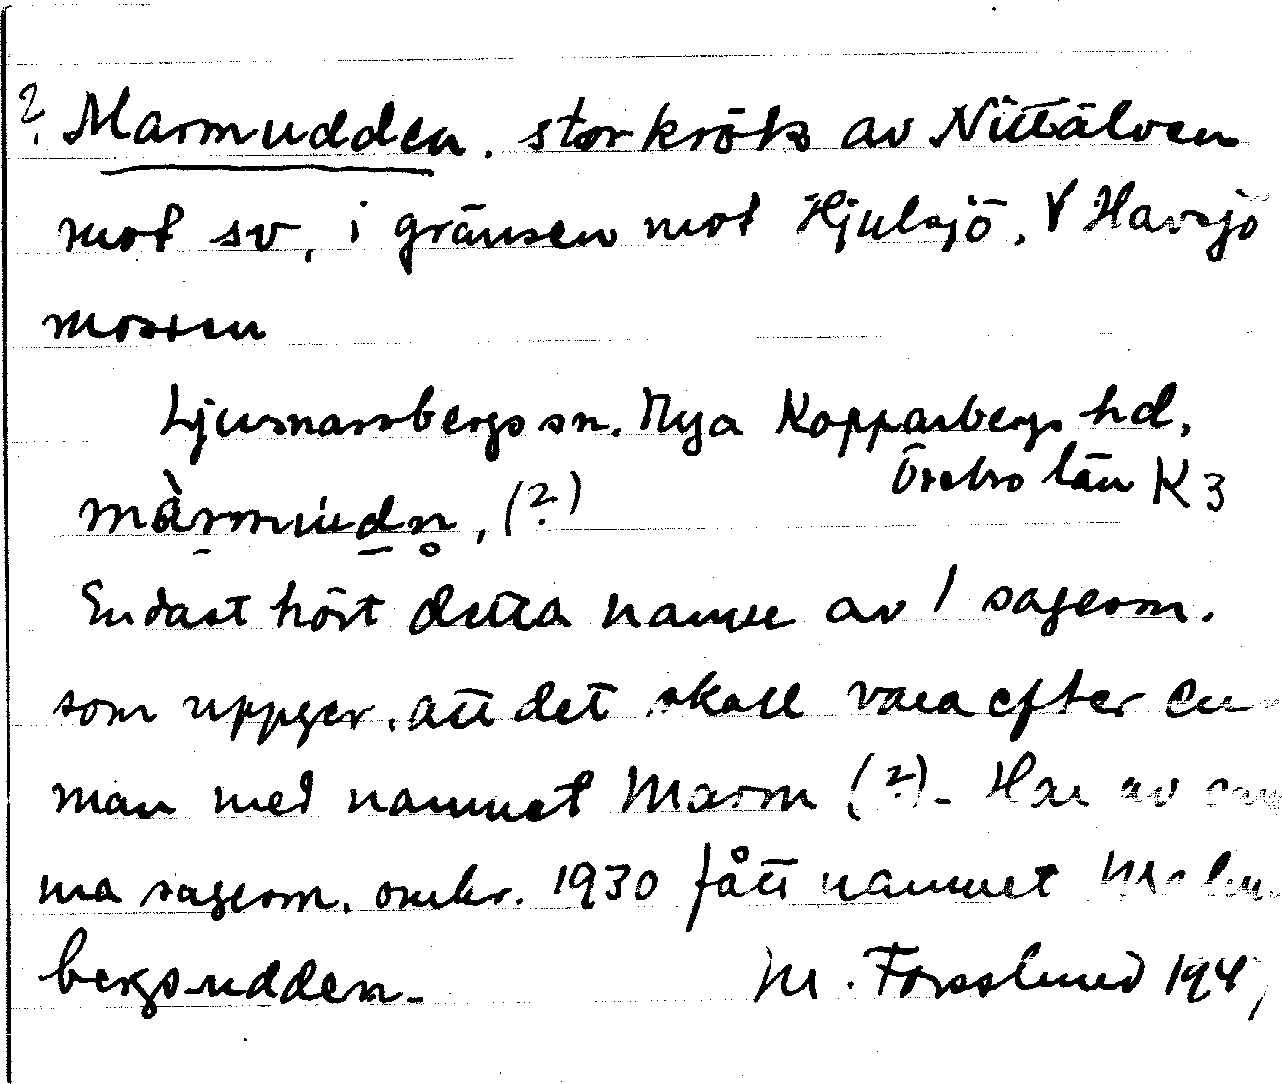 ? Marmudden. stor krök av Nittälven
mot sv, i gränsen mot Hjulsjö, V Havsjö
mossen
Ljusnarsbergs sn. Nya Kopparbergs hd,
Örebro län K 3
màrmudn, (?)
Endast hört detta namn av 1 sagesm.
som uppger, att det skall vara efter en
man med namnet Marm (?). Har av sam
ma sagesm. omkr. 1930 fått namnet
bergsudden.
M. Forsslund 194